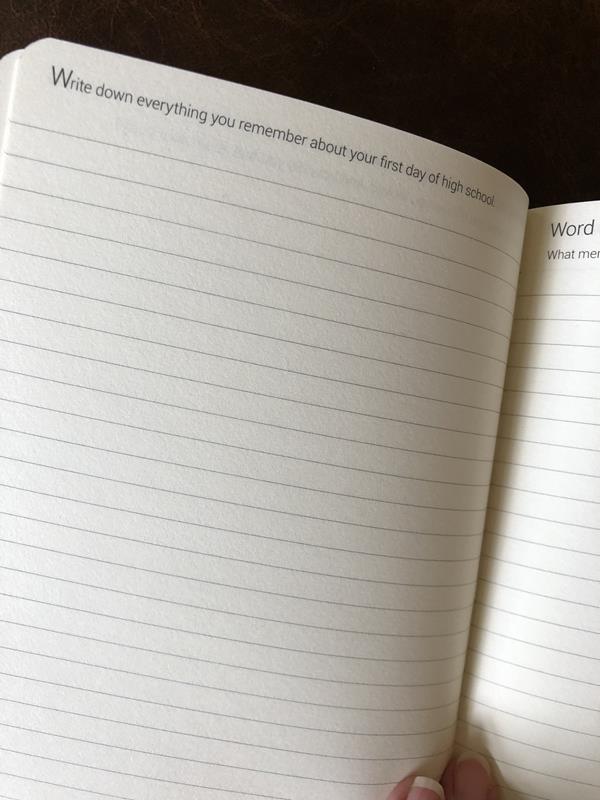 Write down everything you remember about your first day of high school.
Word
What